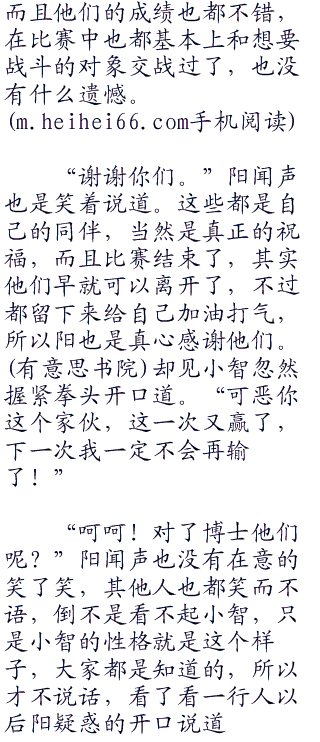 而且他们的成绩也都不错，
在比赛中也都基本上和想要
战斗的对象交战过了，也没
有什么遗憾。
(m.heihei66.com手机阅读)
“谢谢你们。”阳闻声
也是笑着说道。这些都是自
己的同伴，当然是真正的祝
福，而且比赛结束了，其实
他们早就可以离开了，不过
都留下来给自己加油打气，
所以阳也是真心感谢他们。
(有意思书院)却见小智忽然
握紧拳头开口道。“可恶你
这个家伙，这一次又赢了，
下一次我一定不会再输
了！”
“呵呵！对了博士他们
呢？”阳闻声也没有在意的
笑了笑，其他人也都笑而不
语，倒不是看不起小智，只
是小智的性格就是这个样
子，大家都是知道的，所以
才不说话，看了看一行人以
后阳疑惑的开口说道